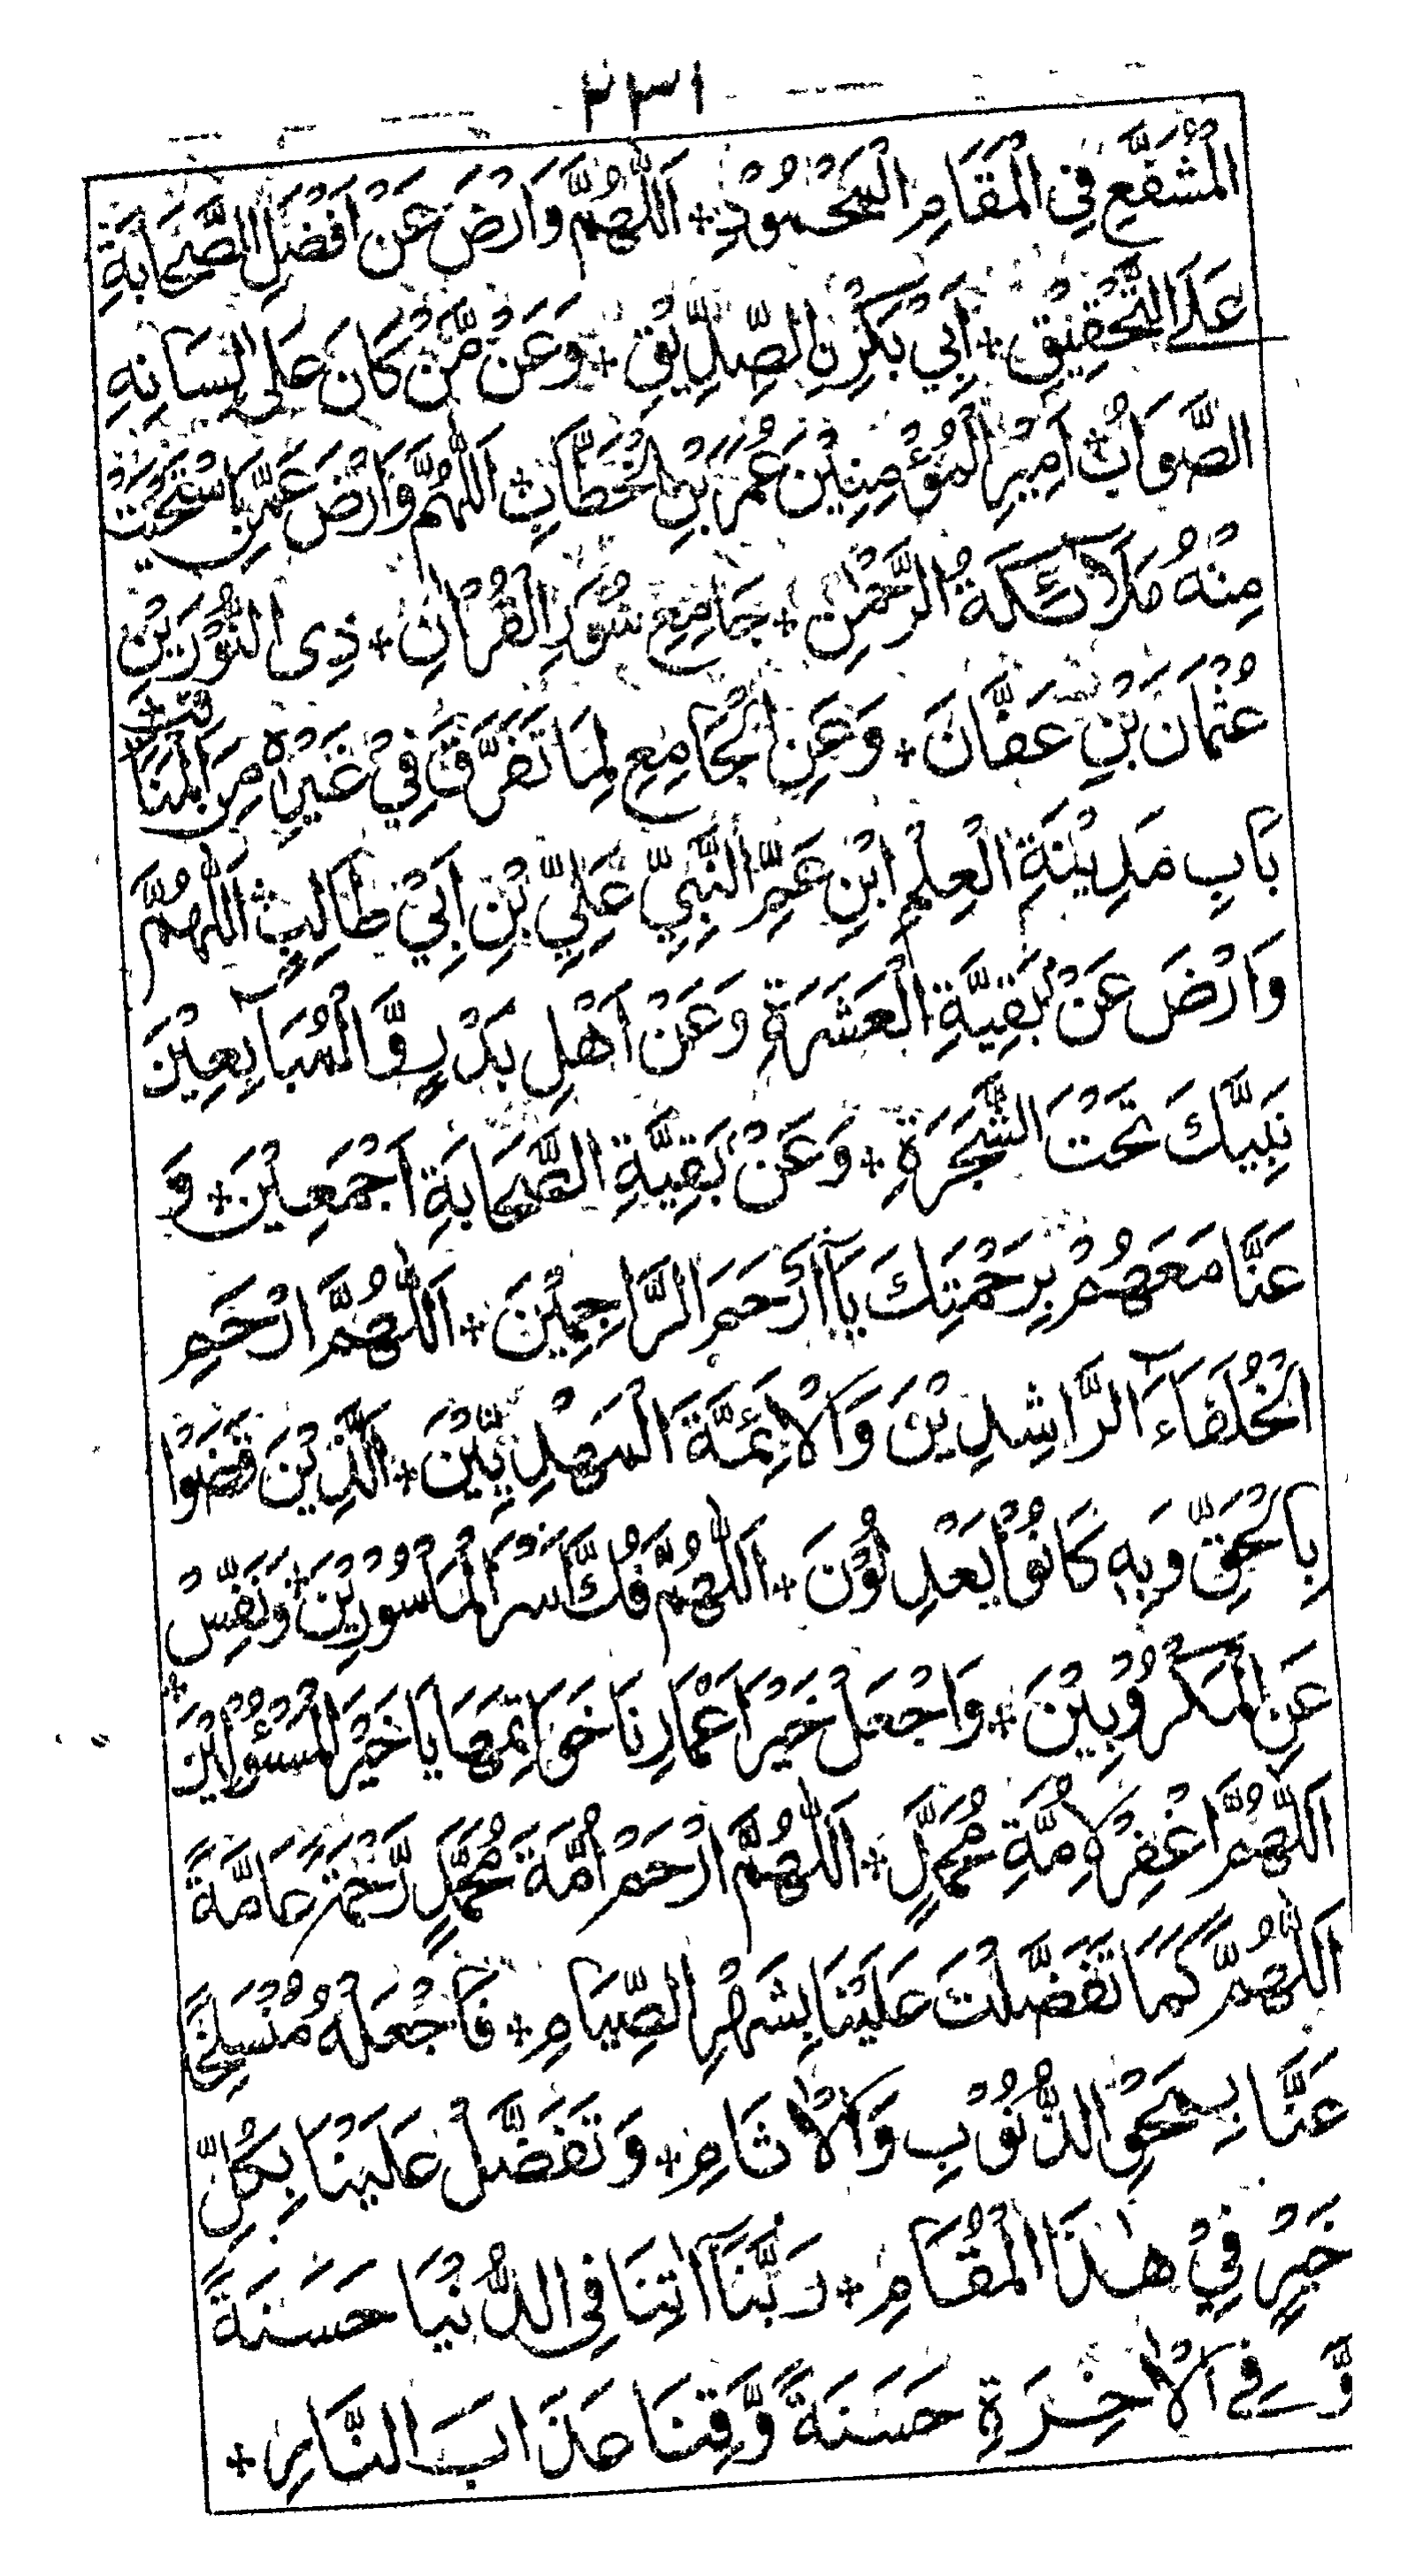 ٢٣١
الْمُشَفَّعِ فِي الْمَقَامِ الْمَحْمُوْدِ + اَللّٰهُمَّ وَارْضَ عَنْ اَفْضَلِ الصَّحَابَةِ
عَلَى التَّحْقِيْقِ + اَبِيْ بَكْرِنِ الصِّدِّيْقِ + وَعَنْ مَّنْ كَانَ عَلٰى لِسَانِهِ
الصَّوَابُ + اَمِيْرِ الْمُؤْمِنِيْنَ عُمَرَ بْنِ الْخَطَّابِ + اَللّٰهُمَّ وَارْضَ عَمَّنِ اسْتَحْيَتْ
مِنْهُ مَلَآئِكَةُ الرَّحْمٰنِ + جَامِعِ سُوَرِ الْقُرْاٰنِ + ذِى النُّوْرَيْنِ
عُثْمَانَ بْنِ عَفَّانَ + وَعَنِ الْجَامِعِ لِمَا تَفَرَّقَ فِيْ غَيْرِهٖ مِنَ الْمَنَاقِبِ +
بَابِ مَدِيْنَةِ الْعِلْمِ ابْنِ عَمِّ النَّبِيِّ عَلِيِّ بْنِ اَبِيْ طَالِبٍ اَللّٰهُمَّ
وَارْضَ عَنْ بَقِيَّةِ الْعَشَرَةِ وَعَنْ اَهْلِ بَدْرٍ وَّالْمُبَايِعِيْنَ
نَبِيَّكَ تَحْتَ الشَّجَرَةِ + وَعَنْ بَقِيَّةِ الصَّحَابَةِ اَجْمَعِيْنَ + وَ
عَنَّا مَعَهُمْ بِرَحْمَتِكَ يَآ اَرْحَمَ الرَّاحِمِيْنَ + اَللّٰهُمَّ ارْحَمِ
الْخُلَفَاءَ الرَّاشِدِيْنَ وَالْاَئِمَّةَ الْمَهْدِيِّيْنَ + الَّذِيْنَ قَضَوْا
بِالْحَقِّ وَبِهٖ كَانُوْا يَعْدِلُوْنَ + اَللّٰهُمَّ فُكَّ اَسْرَ الْمَاسُوْرِيْنَ + وَنَفِّسْ
عَنِ الْمَكْرُوْبِيْنَ + وَاجْعَلْ خَيْرَ اَعْمَارِنَا خَوَاتِمَهَا يَا خَيْرَ الْمَسْئُوْلِيْنَ +
اَللّٰهُمَّ اغْفِرْ لِاُمَّةِ مُحَمَّدٍ + اَللّٰهُمَّ ارْحَمْ اُمَّةَ مُحَمَّدٍ رَّحْمَةً عَامَّةً
اَللّٰهُمَّ كَمَا تَفَضَّلْتَ عَلَيْنَا بِشَهْرِ الصِّيَامِ + فَاجْعَلْهُ مُنْسَلِخًا
عَنَّا بِمَحْوِ الذُّنُوْبِ وَالْاٰثَامِ + وَتَفَضَّلْ عَلَيْنَا بِكُلِّ
خَيْرٍ فِيْ هٰذَا الْمُقَامِ + رَبَّنَآ اٰتِنَا فِى الدُّنْيَا حَسَنَةً
وَّفِى الْاٰخِرَةِ حَسَنَةً وَّقِنَا عَذَابَ النَّارِ +